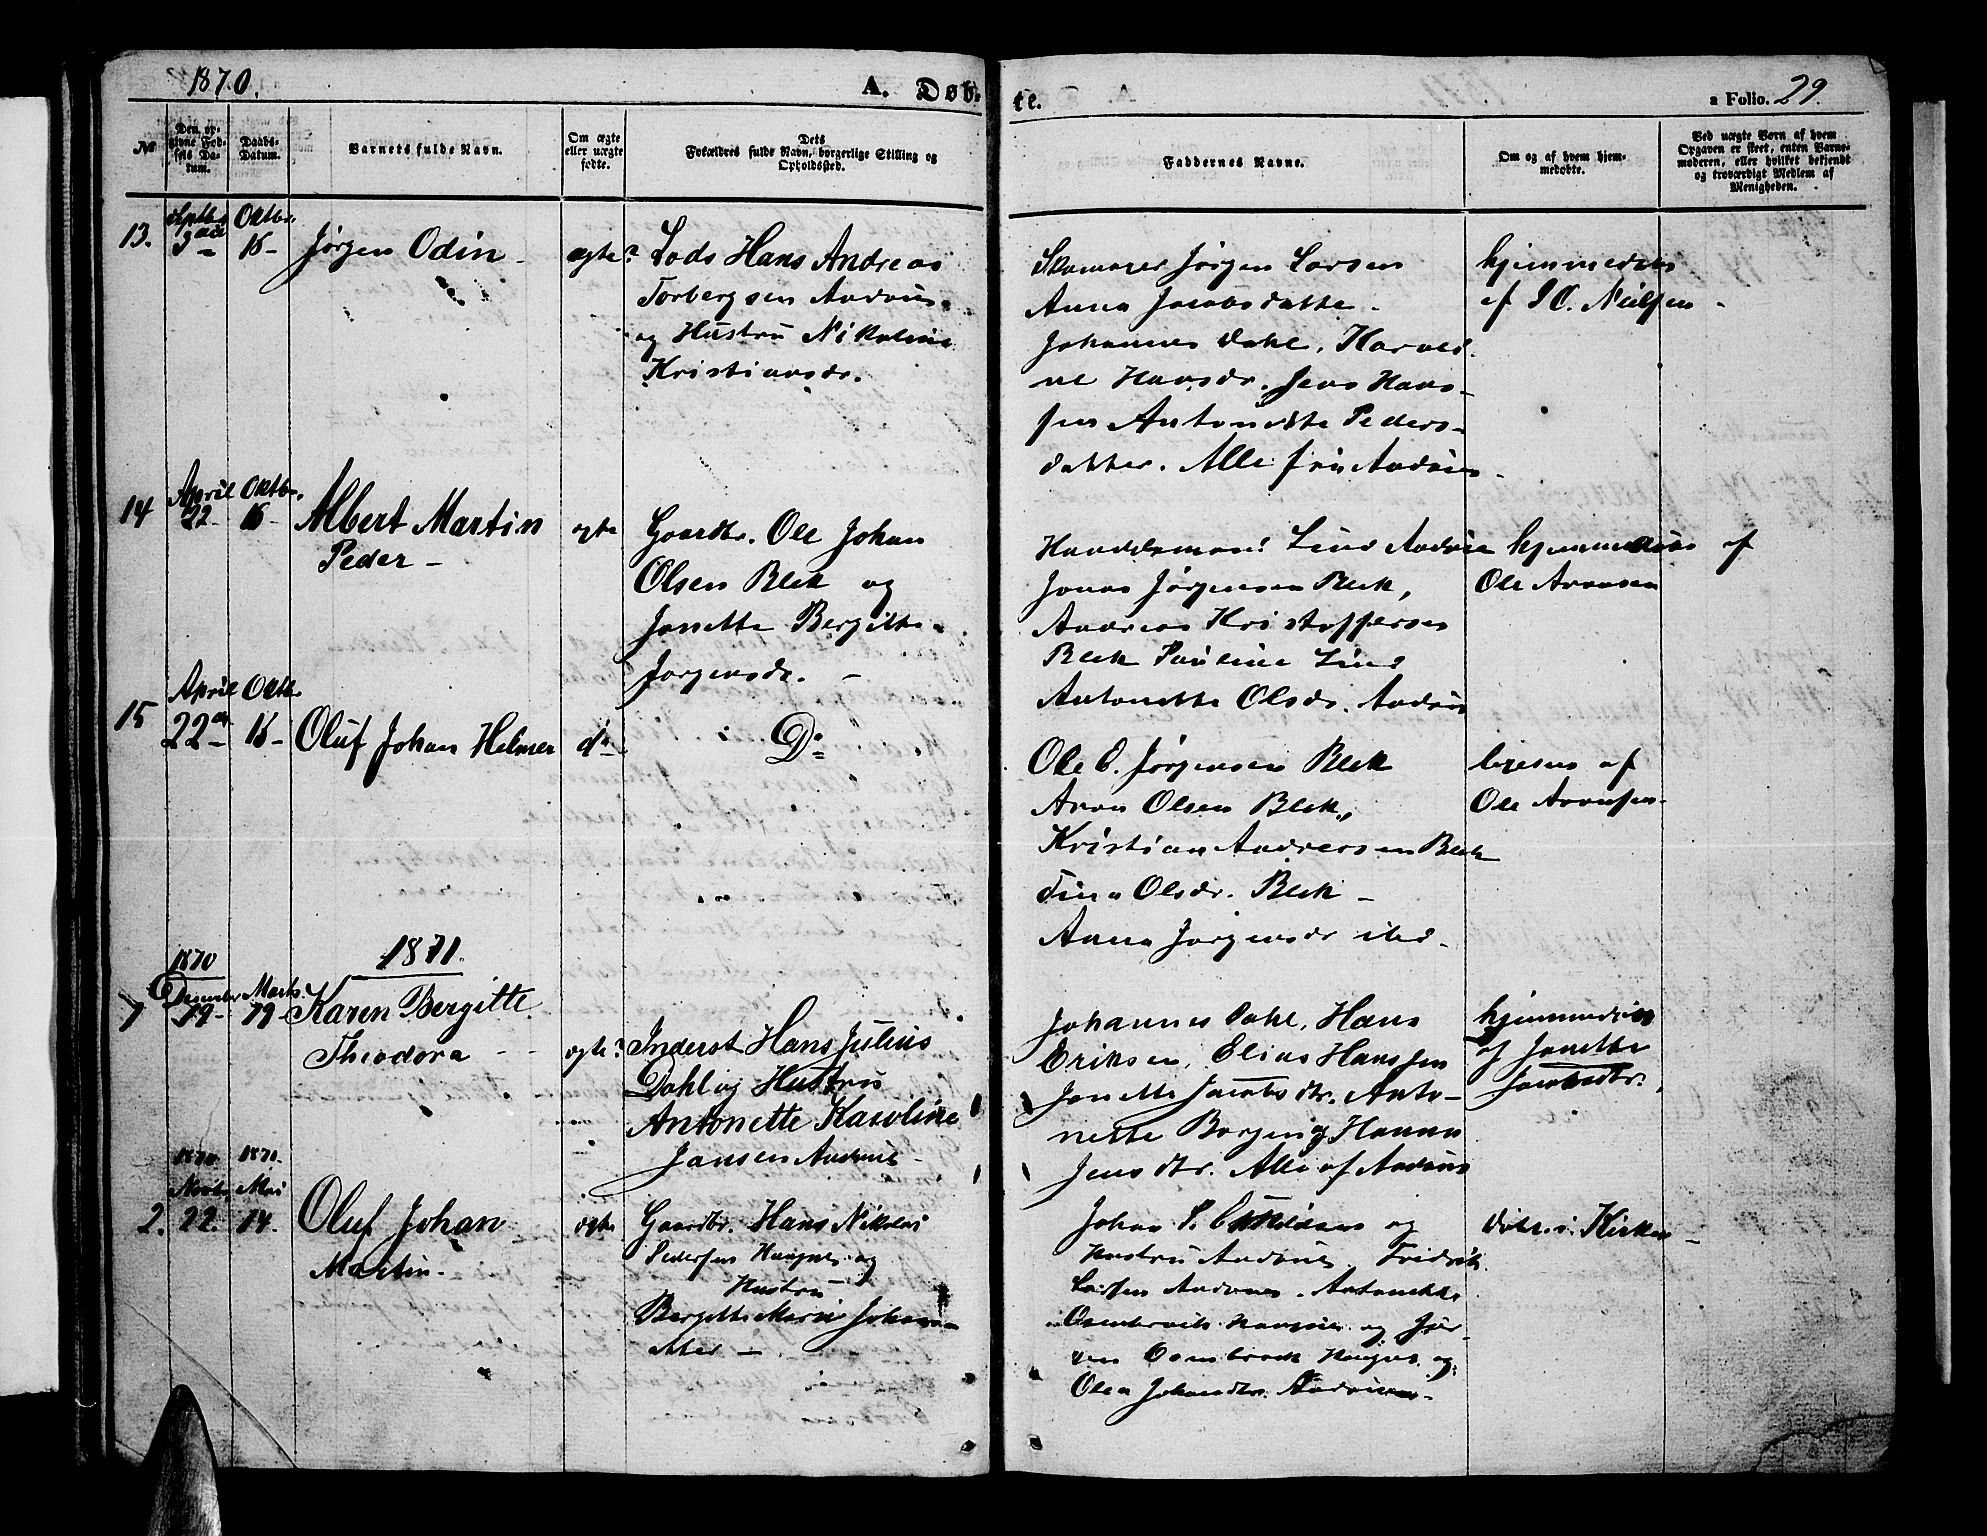 1870.
A. Døb-
te.
a Folio. 29.
No
Den op-
givne Fød-
sels Da-
tum.
Daabs-
Datum.
Barnets fulde Navn.
Om ægte
eller uægte
fødte.
Dets
Forældres fulde Navn, borgerlige Stilling og
Opholdssted.
Faddernes Navne.
Om og af hvem hjem-
medøbte.
Ved uægte Børn af hvem
Opgaven er skeet, enten Barne-
moderen, eller hvilket bekjendt
og troværdigt Medlem af
Menigheden.
13.
Septbr
Oktbr.
Jørgen Odin
ægte?
Lods Hans Andreas
Torbergsen Andøus
og Hustru Nikoline
Kristiansdr.
Skomager Jørgen Larsen
Anna Jacobsdatter
Johannes Dahl, Harald
ne Hansdr. Jens Hans-
sen Antonette Peders-
datter. Alle fra Andøus
hjemmedøbt
af J C. Neilsen
14
April
22
Oktbr.
Albert Martin
Peder
ægte
Gaardbr. Ole Johan
Olsen Blek og
Janette Bergitte
Jørgensdr.
Handelsmand Lind Andøus
Jonas Jørgensen Blek,
Andreas Kristoffersen
Blek Pauline Lind
Antonette Olsdr. Andøus
hjemmedøbt af
Ole Aronsen
15
April
22
Oktb
Oluf Johan Helmer
do
Do
Ole O. Jørgensen Blek
Aron Olsen Blek,
Kristian Andersen Blek
Tina Olsdr. Blek
Anna Jørgensdr ibd.
ligesaa af
Ole Aronsen
1871.
1870
Desember
19
Marts.
19
Karen Bergitte
Theodora
ægte?
Inderst Hans Julius
Dahl og Hustru
Antonette Karoline
Jansen Andøus
Johannes Dahl, Hans
Eriksen, Elias Hanssen
Janette Jacobsdtr. Anto-
nette Borgen og Hanna
Jensdtr. Alle af Andøus
hjemmedøbt
af Janette
Jacobsdtr.
2.
1870
Novbr
22.
1871.
Mai
14.
Oluf Johan
Martin.
ægte
Gaardbr. Hans Nikolai
Pedersen Haugnes og
Hustru
Bergitte Marie Johans-
atter
Johan P.
og
Hustru Andøus, Fredrik
Larsen Andøus, Antonette
Haugnes og Jør-
gen
Haugnes og
Olea Johansdtr. Andøus
døbt i Kirken